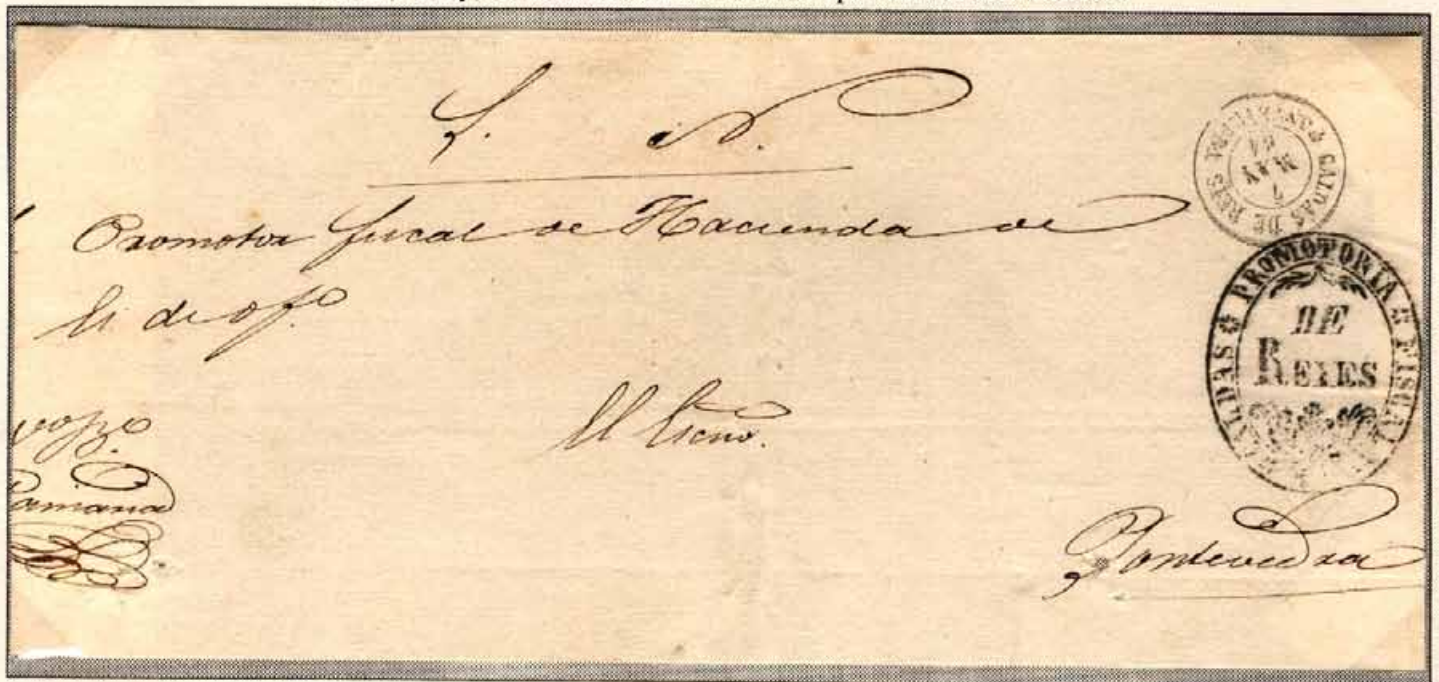 S. N.
Promotor fiscal de Hacienda de
Es de ofº
El Escnº.
Pontevedra
CALDAS DE REIS PONTEVEDRA
7
MAY
PROMOTORIA FISCAL CALDAS
DE
REYES